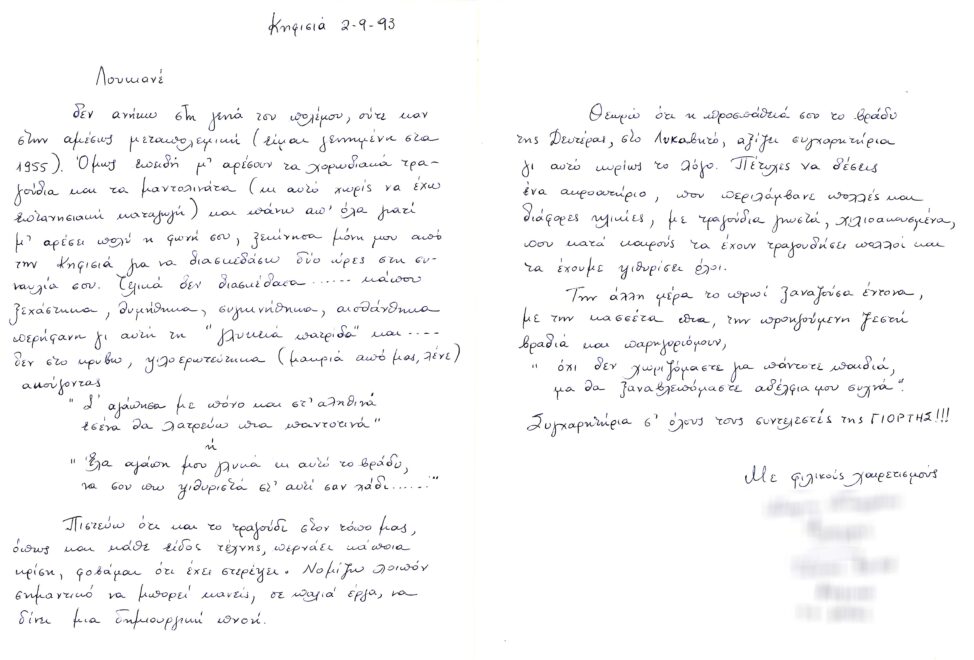 Κηφισιά 2-9-93
Λουκιανέ
δεν ανήκω στη γενιά του πολέμου, ούτε καν
στην αμέσως μεταπολεμική (είμαι γεννημένη στα
1955). Όμως επειδή μ' αρέσουν τα χορωδιακά τρα-
γούδια και τα μαντολινάτα (κι αυτό χωρίς να έχω
επτανησιακή καταγωγή) και πάνω απ' όλα γιατί
μ' αρέσει πολύ η φωνή σου, ξεκίνησα μόνη μου από
την Κηφισιά για να διασκεδάσω δύο ώρες στη συ-
ναυλία σου. Τελικά δεν διασκέδασα ...... κάπου
ξεχάστηκα, θυμήθηκα, συγκινήθηκα, αισθάνθηκα
περήφανη γι αυτή τη "γλυκειά πατρίδα" και ....
δεν στο κρύβω, ψιλοερωτεύτηκα (μακριά από μας, λένε)
ακούγοντας
"Σ' αγάπησα με πόνο και στ' αληθινά
εσένα θα λατρεύω πια παντοτινά"
ή
"Έλα αγάπη μου γλυκά κι αυτό το βράδυ,
να σου πω ψιθυριστά στ' αυτί σαν λάδι......"
Πιστεύω ότι και το τραγούδι στον τόπο μας,
όπως και κάθε είδος τέχνης, περνάει κάποια
κρίση, φοβάμαι ότι έχει στερέψει. Νομίζω λοιπόν
σημαντικό να μπορεί κανείς, σε παλιά έργα, να
δίνει μια δημιουργική πνοή.
Θεωρώ ότι η προσπάθειά σου το βράδυ
της Δευτέρας, στο Λυκαβητό, αξίζει συγχαρητήρια
γι αυτό κυρίως το λόγο. Πέτυχες να δέσεις
ένα ακροατήριο, που περιλάμβανε πολλές και
διάφορες ηλικίες, με τραγούδια γνωστά, χιλιοακουσμένα,
που κατά καιρούς τα έχουν τραγουδήσει πολλοί και
τα έχουμε ψιθυρίσει όλοι.
Την άλλη μέρα το πρωί ξαναζούσα έντονα,
με την κασσέτα πια, την προηγούμενη ζεστή
βραδιά και παρηγοριόμουν,
"όχι δεν χωριζόμαστε για πάντοτε παιδιά,
μα θα ξαναβλεπόμαστε αδέλφια μου συχνά".
Συγχαρητήρια σ' όλους τους συντελεστές της ΓΙΟΡΤΗΣ!!!
Με φιλικούς χαιρετισμούς